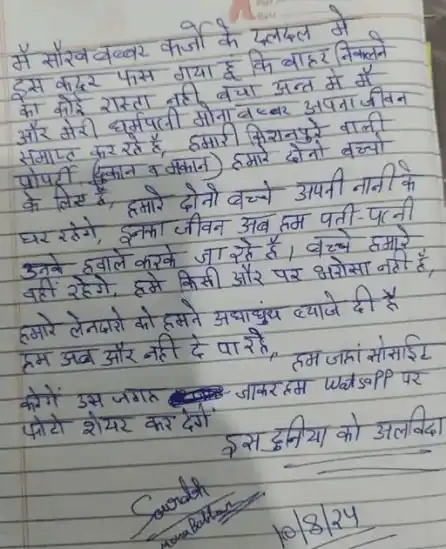 मैं सौरव बब्बर कर्जो के दलदल मे
इस कदर फस गया हूं कि बाहर निकलने
का कोई रास्ता नही बचा अन्त मे मैं
और मेरी धर्मपत्नी मोना बब्बर अपना जीवन
समाप्त कर रहे है, हमारी किशनपुरे वाली
प्रोपर्टी (दुकान व मकान) हमारे दोनो बच्चो
के लिए है, हमारे दोनो बच्चे अपनी नानी के
घर रहेगे, इनका जीवन अब हम पती-पत्नी
उनके हवाले करके जा रहे है। बच्चे हमारे
वहीं रहेगे, हमे किसी और पर भरोसा नही है,
हमारे लेनदारो को हमने अंधाधुंध ब्याजे दी है
हम अब और नही दे पा रहे, हम जहां सोसाईट
करेगें उस जगह जाकर हम Watsapp पर
फोटो शेयर कर देगें
इस दुनिया को अलविदा
Saurabh
Mona Babbar
10/8/24